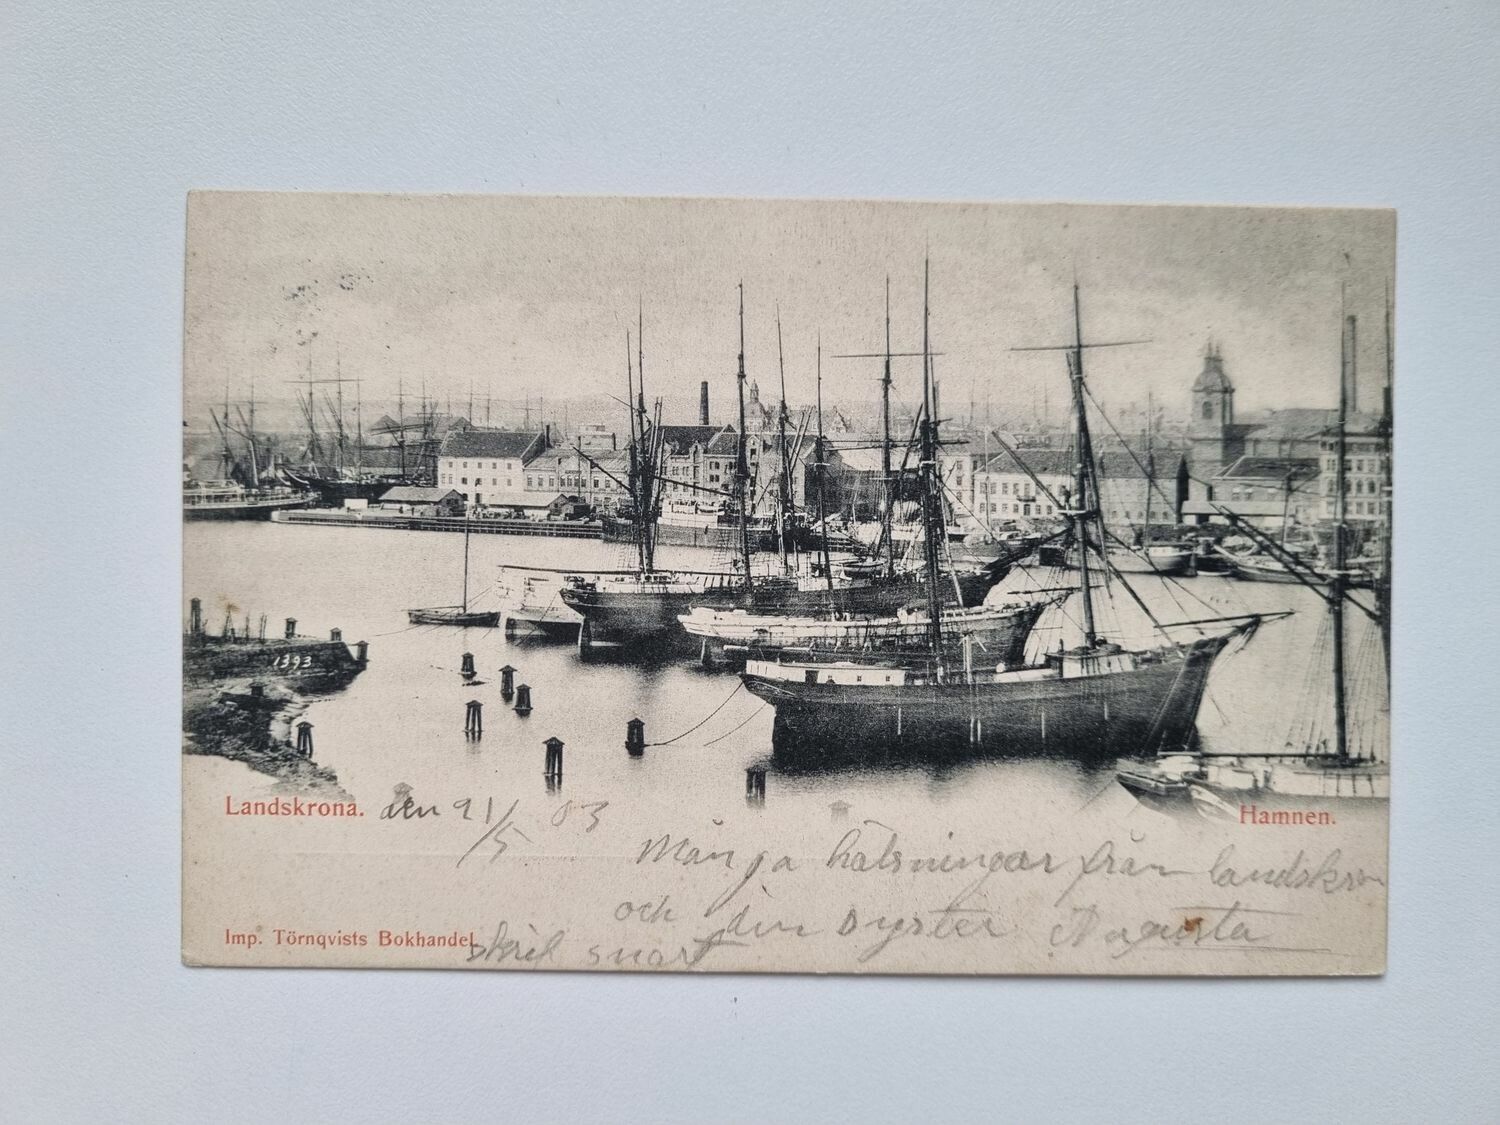 1393
Landskrona. den 21/5 03
Hamnen.
Många hälsningar från landskron
och din syster Augusta
Imp. Törnqvists Bokhandel
skrif snart